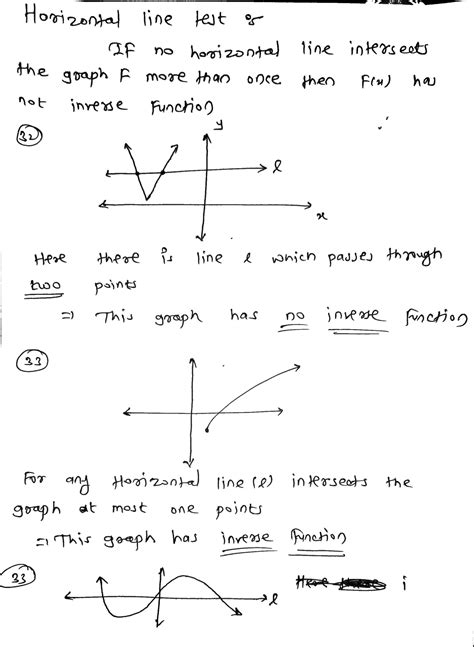 Horizontal line test :
If no horizontal line intersects
the graph F more than once then F(x) has
not inverse Function
32
y
l
x
Here there is line l which passes through
two points
=> This graph has no inverse function
33
For any Horizontal line (l) intersects the
graph at most one points
=> This graph has inverse function
33
l
i